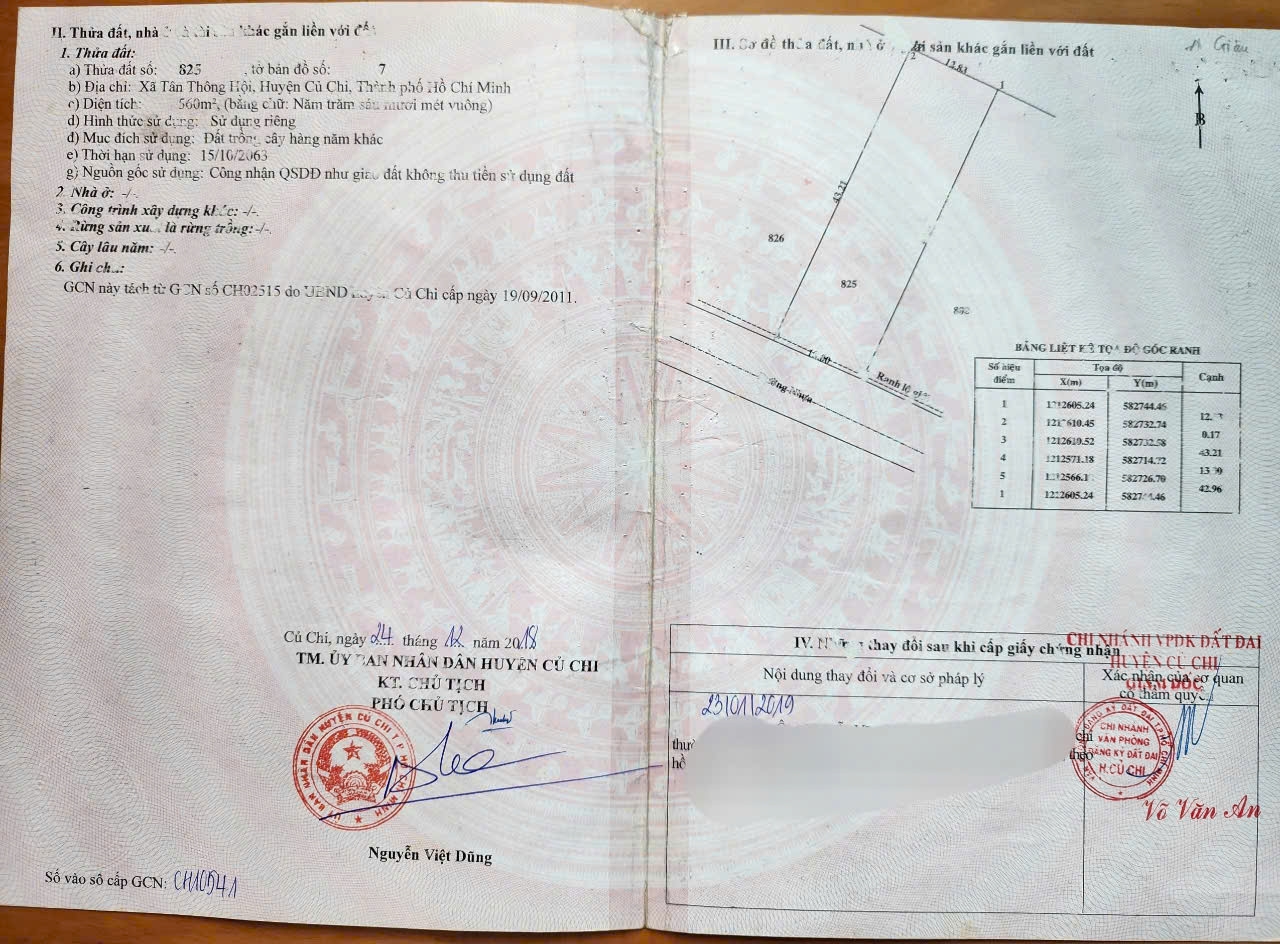 II. Thửa đất, nhà khác gắn liền với đất
1. Thửa đất:
a) Thửa đất số: 825 , tờ bản đồ số: 7
b) Địa chỉ: Xã Tân Thông Hội, Huyện Củ Chi, Thành phố Hồ Chí Minh
c) Diện tích: 560m², (bằng chữ: Năm trăm sáu mươi mét vuông)
d) Hình thức sử dụng: Sử dụng riêng
đ) Mục đích sử dụng: Đất trồng cây hàng năm khác
e) Thời hạn sử dụng: 15/10/2063
g) Nguồn gốc sử dụng: Công nhận QSDĐ như giao đất không thu tiền sử dụng đất
2. Nhà ở: -/-
3. Công trình xây dựng khác: -/-.
4. Rừng sản xuất là rừng trồng:-/-.
5. Cây lâu năm: -/-.
6. Ghi chú:
GCN này tách từ GCN số CH02515 do UBND huyện Củ Chi cấp ngày 19/09/2011.
Củ Chi, ngày 24 tháng 12 năm 2018
TM. ỦY BAN NHÂN DÂN HUYỆN CỦ CHI
KT. CHỦ TỊCH
PHÓ CHỦ TỊCH
Nguyễn Việt Dũng
Số vào sổ cấp GCN: CH10541
III. Sơ đồ thửa đất, nhà ở sản khác gắn liền với đất
B
2
12.83
1
43.21
826
825
Ranh lộ
BẢNG LIỆT KÊ TỌA ĐỘ GÓC RANH
Số hiệu điểm Tọa độ Cạnh
X(m) Y(m)
1 1212605.24 582744.46
2 1212610.45 582732.74
0.17
3 1212610.52 582732.58
43.21
4 1212571.18
5 582726.70
42.96
1 1212605.24
IV. Những thay đổi sau khi cấp giấy chứng nhận
Nội dung thay đổi và cơ sở pháp lý
Xác nhận của cơ quan
có thẩm quyền
CHI NHÁNH VPDK ĐẤT ĐAI
HUYỆN CỦ CHI
GIÁM ĐỐC
23/01/2019
chi
theo
hồ
CHI NHÁNH
VĂN PHÒNG
ĐĂNG KÝ ĐẤT ĐAI
H.CỦ CHI
Võ Văn An